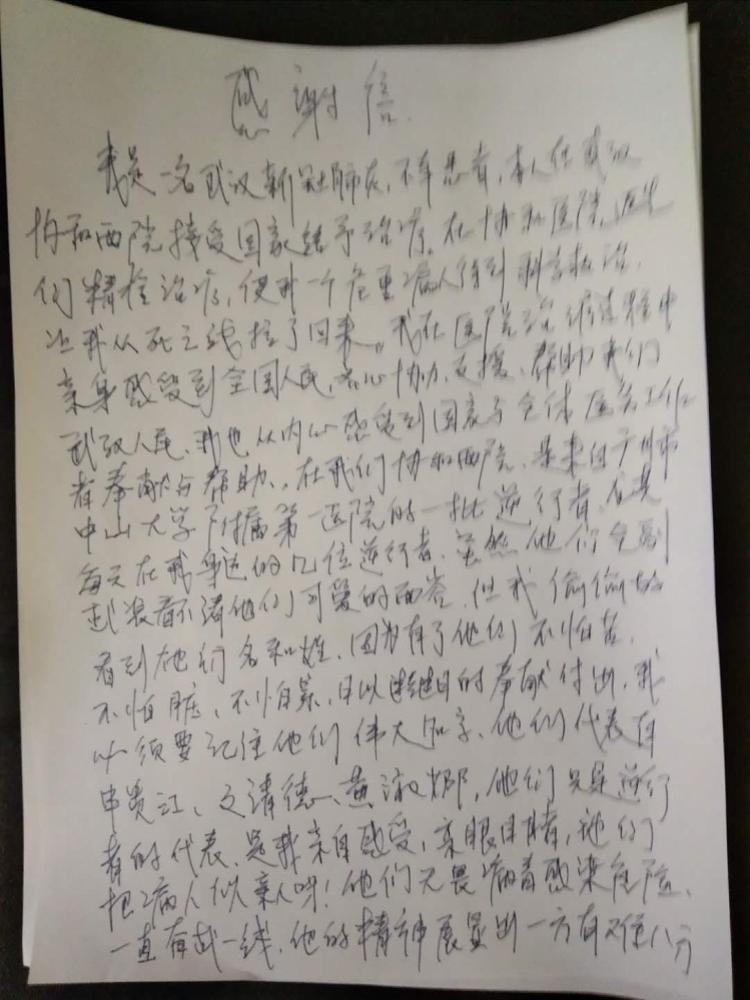 感谢信
我是一名武汉新冠肺炎,不幸患者,本人在武汉
协和西院接受国家给予治疗。在协和医院,医生
们精检治疗,使我一个危重病人得到科学救治,
把我从死亡线拉了回来。我在医院治疗过程中
亲身感受到全国人民,齐心协力,支援、帮助我们
武汉人民,我也从内心感受到国家与全体医务工作
者奉献与帮助。在我们协和西院,是来自广州市
中山大学附属第一医院的一批逆行者,尤其
每天在我身边的几位逆行者,虽然他们全副
武装看不清他们可爱的面容,但我偷偷的
看到他们名和姓,因为有了他们不怕苦,
不怕脏,不怕累,日以继日的奉献付出,我
必须要记住他们伟大名字,他们代表有
申贵江、文清德、黄淑娜,他们只是逆行
者的代表,是我亲自感受,亲眼目睹,她们
把病人似亲人呀!他们无畏病毒感染危险,
一直奋战一线,他的精神展显出一方有难八方